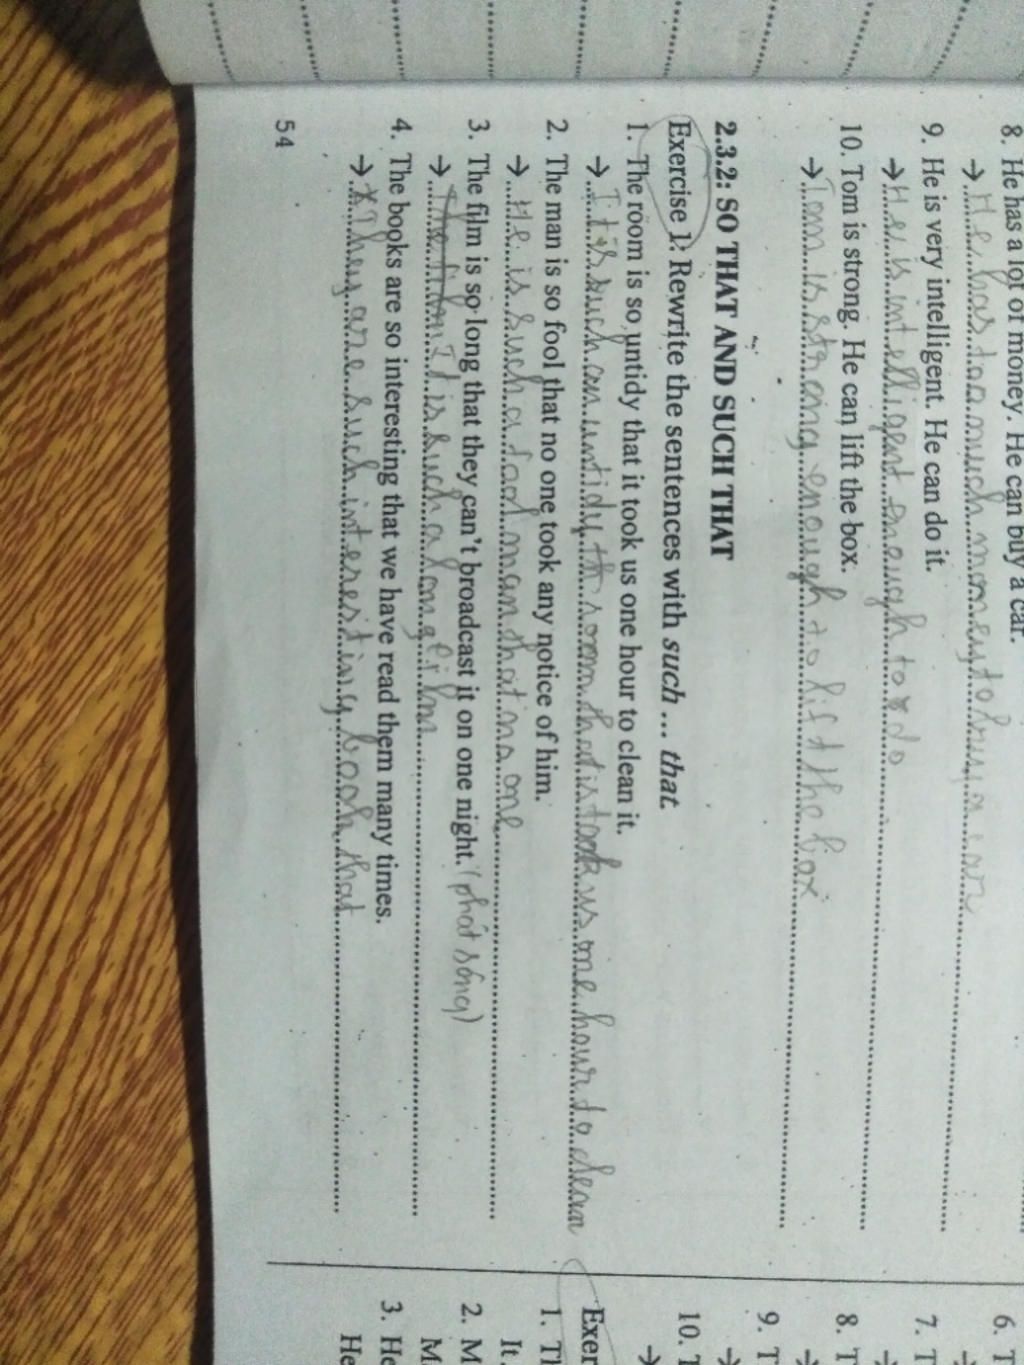 8. He has a lot of money. He can buy a car.
→ He has too much money to buy a car
9. He is very intelligent. He can do it.
→ He is intelligent enough to do
10. Tom is strong. He can lift the box.
→ Tom is strong enough to lift the box
2.3.2: SO THAT AND SUCH THAT
Exercise 1: Rewrite the sentences with such ... that.
1. The room is so untidy that it took us one hour to clean it.
→ It is such an untidy room that is took us one hour to clean
2. The man is so fool that no one took any notice of him.
→ He is such a fool man that no one
3. The film is so long that they can't broadcast it on one night. (phát sóng)
→ It is such a long film
4. The books are so interesting that we have read them many times.
→ They are such interesting book that
54
6. T
7. T
8. T
9. T
10. T
→
Exer
1. Th
It
2. M
M
3. He
He